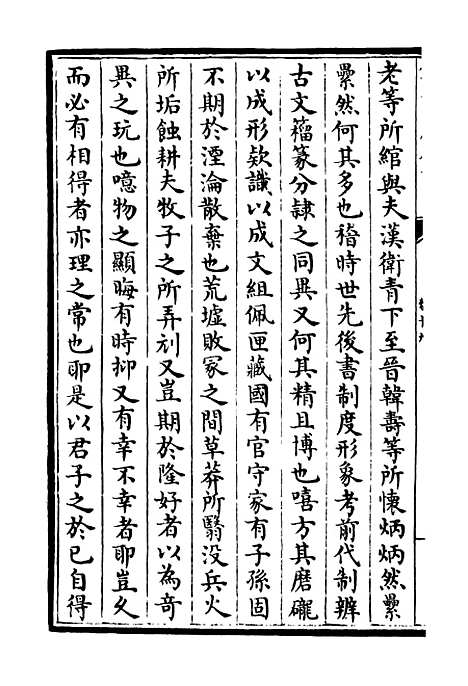 老等所綰與夫漢衛青下至晉韓壽等所懷炳炳然纍
纍然何其多也稽時世先後書制度形象考前代制辦
古文籕篆分隷之同異又何其精且博也嘻方其磨礲
以成形欵識以成文組佩匣藏國有官守家有子孫固
不期於湮淪散棄也荒墟敗冢之間草莽所翳没兵火
所垢蝕耕夫牧子之所弄刓又豈期於隆好者以為竒
異之玩也噫物之顯晦有時抑又有幸不幸者耶豈久
而必有相得者亦理之常也耶是以君子之於已自得